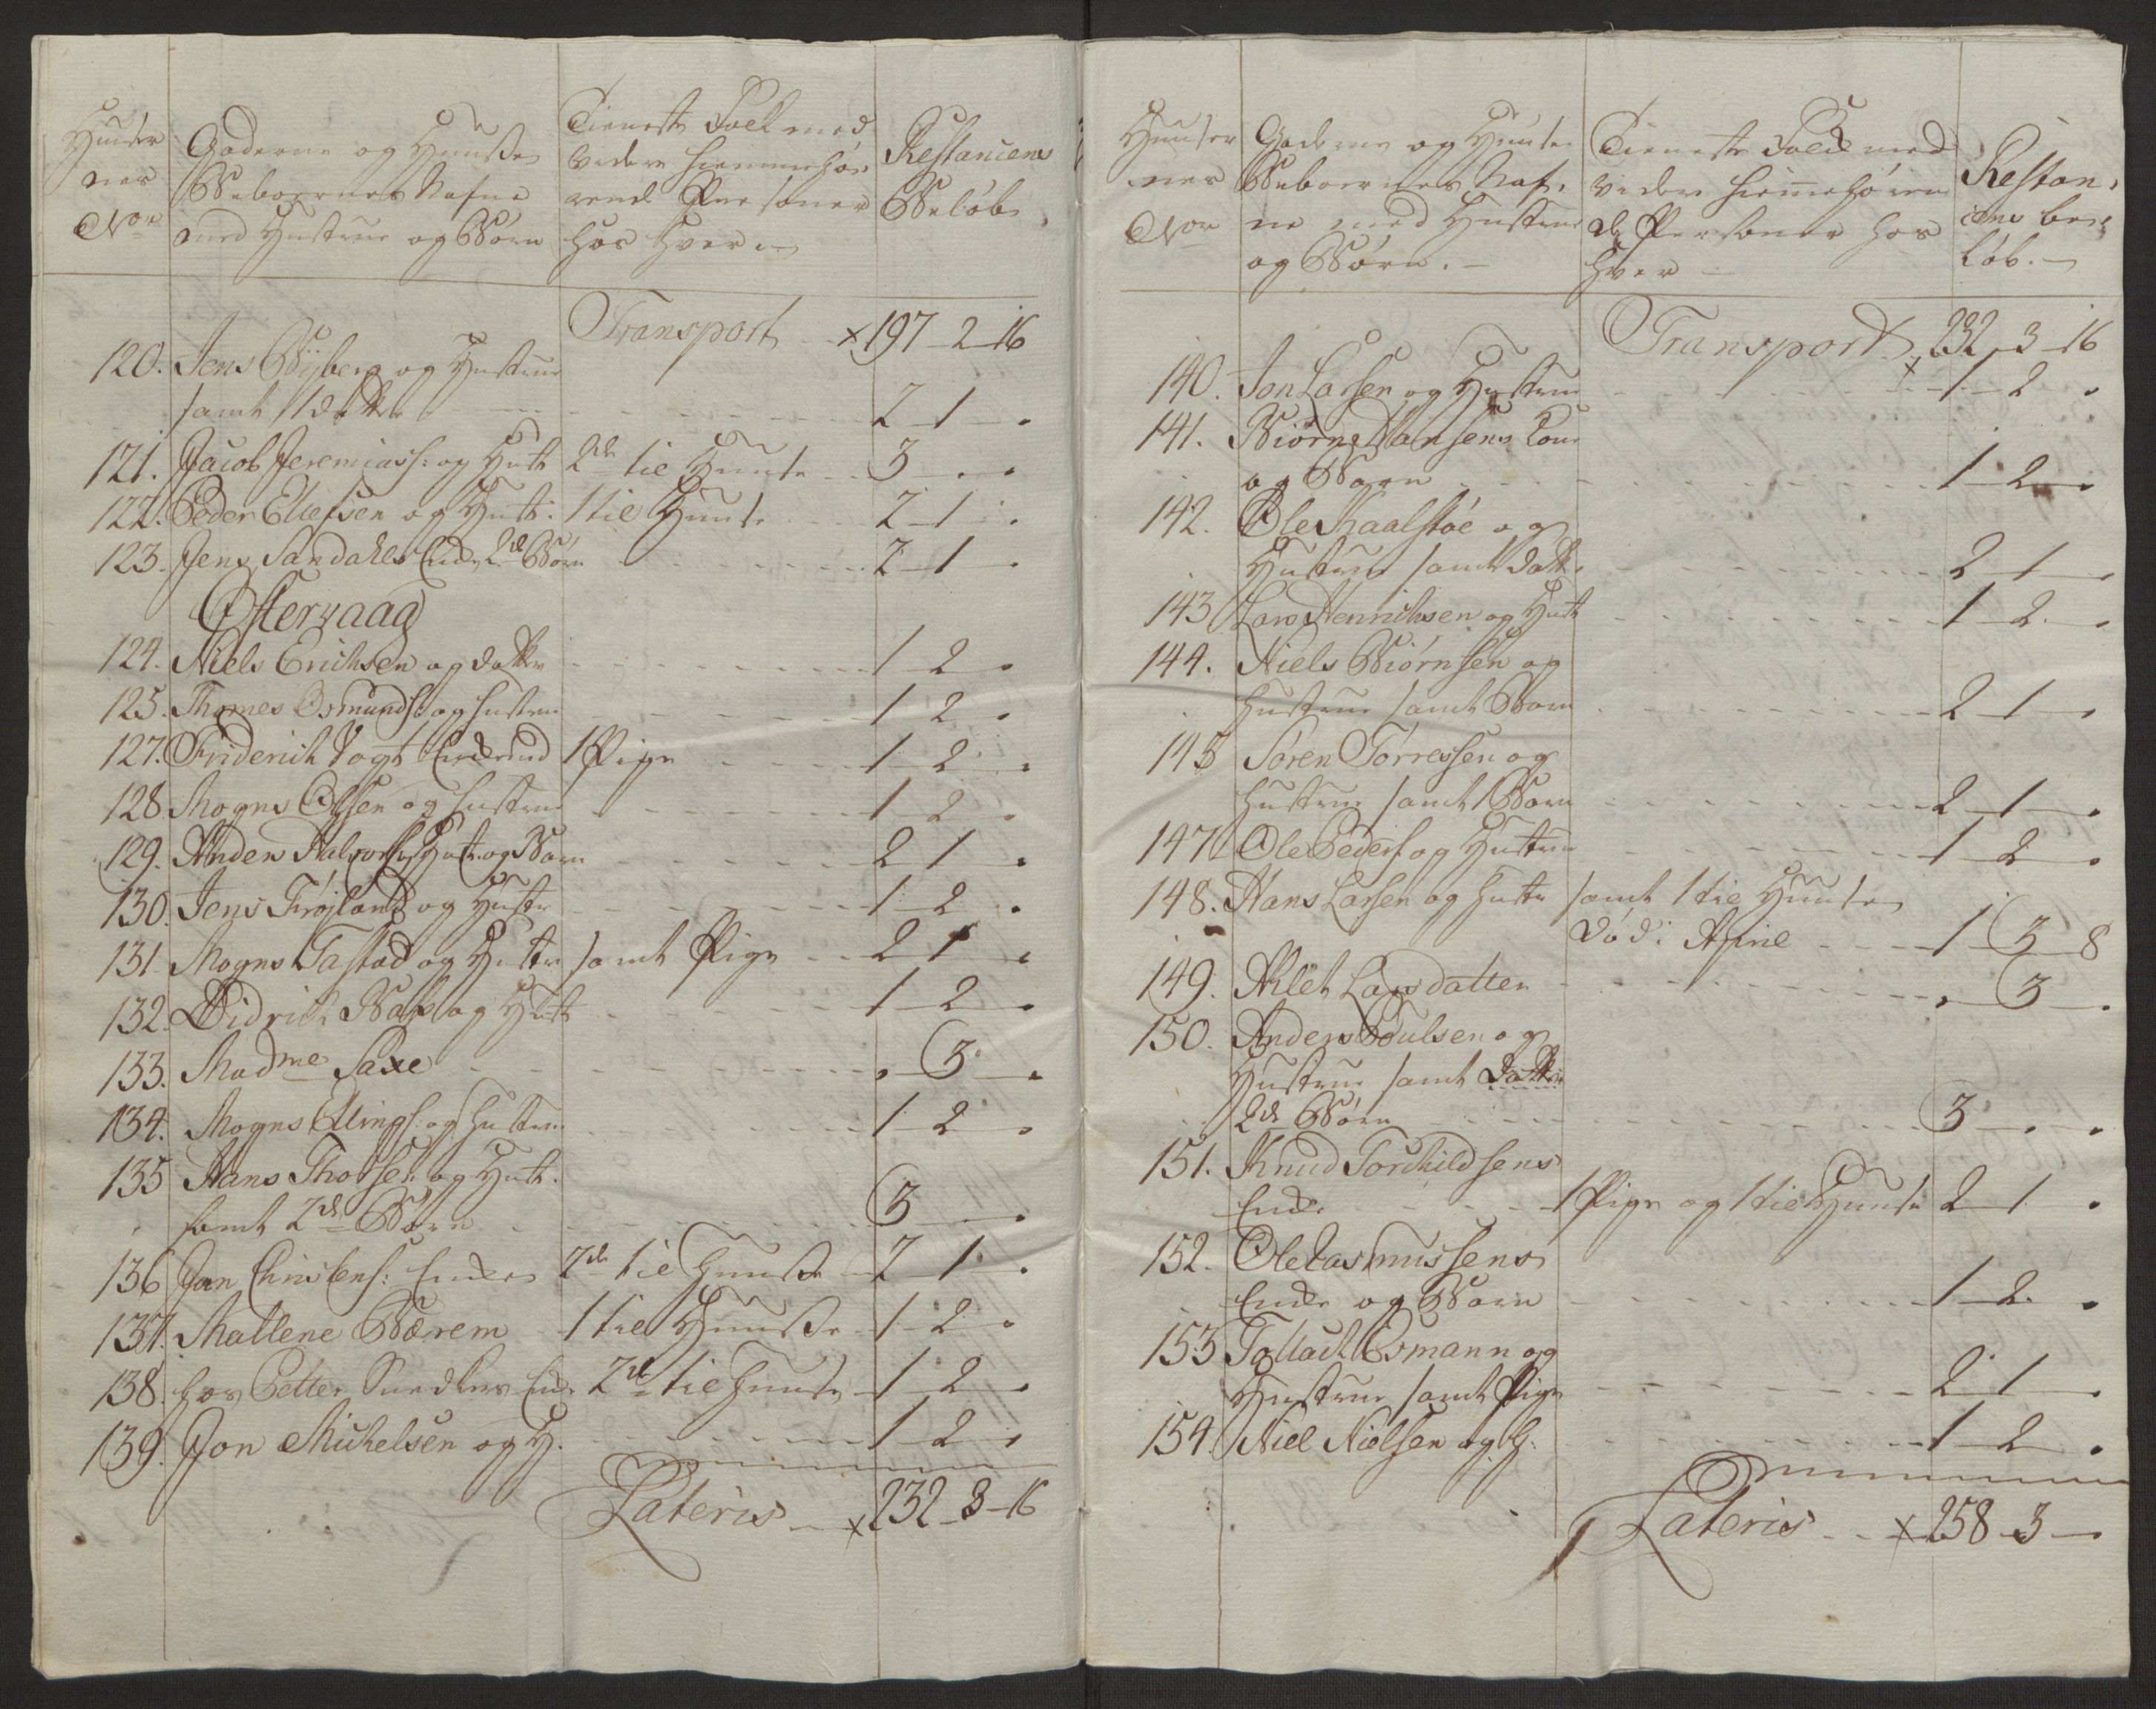 Huuser
nes
Nor
Gaderne og Huusse
Beboernes Nafne
med Hustrue og Børn
Tieneste Folk med
videre hiemmehør
rende Personer
hos hver
Restancens
Beløb
Transport x 197 - 2 - 16
120. Jens Byberg og Hustrue
samt 1 datter 2 - 1 - .
121. Jacob Jeremiass: og Hust 2de til Huuse 3 - . - .
122. Peder Ellefsen og Hust: 1 til Huuse 2 - 1 - .
123. Jens Sandahls Enke 2de Børn 2 - 1 - .
Østervaag
124. Niels Erichsen og datter 1 - 2 - .
125. Thomes Osmunds: og hustrue 1 - 2 - .
127. Friderich Vogt 1 Pige 1 - 2 - .
128 Mogns Olsen og hustrue 1 - 2 - .
129. Anders Halvors: Hust: og Barn 2 - 1 - .
130. Jens Frøjland og Hustr 1 - 2 - .
131 Mogns Tastad og Hustr samt Pige 2 - 1 - .
132. Didrich og Hust 1 - 2 - .
133. Madme Saxe . - 3 - .
134. Mogns Ellings: og Hustrue 1 - 2 - .
135 Hans Thorsen og Hust.
samt 2de Børn 3 - .
136 Jan Christens: Enke 2de til huusse 2 - 1 - .
137. Mallene Bærem 1 til Huusse 1 - 2 - .
138. hos Petter Enk 2de til huuse 1 - 2 - .
139. Jon Michelsen og H. 1 - 2 - .
Lateris x 232 - 3 - 16
Huuser
nes
Nor
Gaderne og Huuse
Beboernes Naf-
ne med Hustrue
og Børn.
Tieneste Folk med
videre hiemehøren
de Personer hos
hver
Restan-
cens be-
løb.
Transport x 232 - 3 - 16
140. Jon Larsen og Hustrue 1 - 2 - .
141. Biørn Hansens Kone
og Barn 1 - 2 - .
142. Ole Kaalstøe og
Hustrue samt Datter 2 - 1 - .
143 Lars Henrichsen og Hust 1 - 2 - .
144. Niels Biørnsen og
hustrue samt Barn 2 - 1 - .
145 Søren Torressen og
hustrue samt 1 Barn 2 - 1 - .
147 Ole Peders: og Hustrue 1 - 2 - .
148. Hans Larsen og hustr samt 1 til Huuse
død: April 1 - 3 - 8
149. Ahlet Larsdatter . - 3 - .
150. Anders Poulsen og
Hustrue samt Datter
2de Børn 3 - . - .
151. Knud Torchildsens
Enke 1 Pige og 1 til Huuse 2 - 1 - .
152. Ole Rasmussens
Enke og Barn 1 - 2 - .
153 Tollach Osmann og
Hustrue samt Pige 2 - 1 - .
154. Niel Nielsen og H: 1 - 2 - .
Lateris x 258 - 3 - .